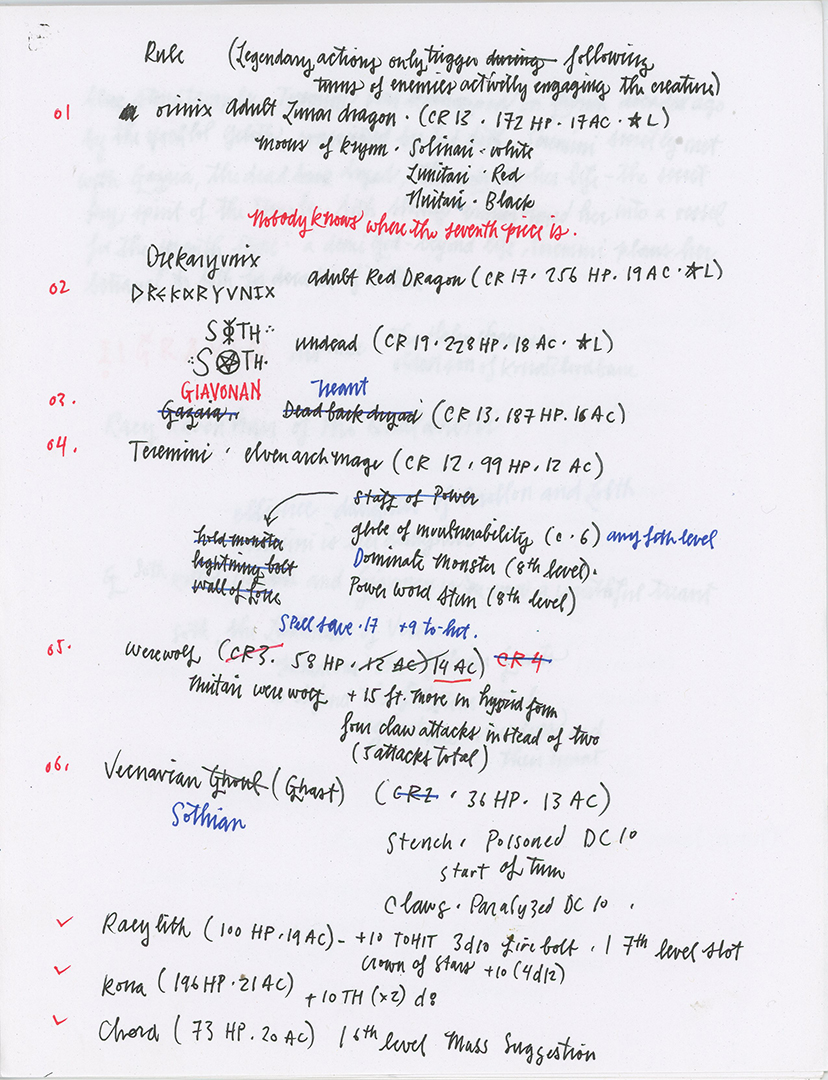 Rule (Legendary actions only trigger during following
turns of enemies actively engaging the creature)
01 orinix adult Lunar dragon · (CR 13 · 172 HP · 17 AC · ★ L)
moons of krynn · Solinari · white
Lunitari · Red
Nuitari · Black
Nobody knows where the seventh piece is.
Drekaryvnix
02 adult Red Dragon (CR 17 · 256 HP · 19 AC · ★ L)
ᚦRᛂKᛟRYVNIX
SOTH undead (CR 19 · 228 HP · 18 AC · ★ L)
SOTH
GIAVONAN Treant
03. Gazaia Dead bark dryad (CR 13 · 187 HP · 16 AC)
04. Teremini · elven archmage (CR 12 · 99 HP · 12 AC)
staff of Power
hold monster globe of invulnerability (c · 6) any forth level
lightning bolt Dominate Monster (8th level).
wall of force Power word Stun (8th level)
Spell save · 17 +9 to-hit.
05. werewolf (CR 3 · 58 HP · 12 AC) 14 AC) CR 4
Nuitari werewolf + 15 ft. move in hybrid form
four claw attacks instead of two
(5 attacks total)
06. Vecnavian Ghoul (Ghast) (CR 2 · 36 HP · 13 AC)
Sothian
Stench · Poisoned DC 10
start of turn
Claws · Paralyzed DC 10 .
✓ Raeylith (100 HP · 19 AC) - +10 TOHIT 3d10 fire bolt · 1 7th level slot
Crown of Stars +10 (4d12)
✓ Rona (196 HP · 21 AC)
+ 10 TH (x2) d8
✓ Chord (73 HP · 20 AC) 1 6th level Mass Suggestion